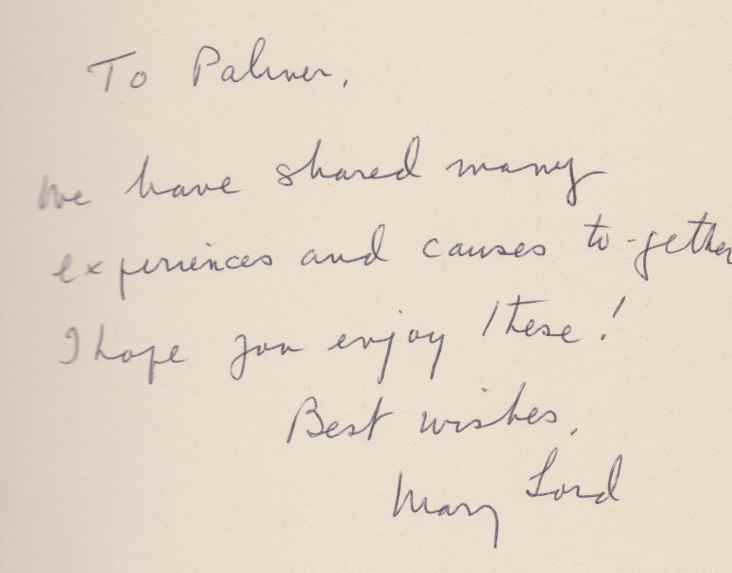 To Palmer,
We have shared many
experiences and causes to-gether
I hope you enjoy these!
Best wishes,
Mary Lord